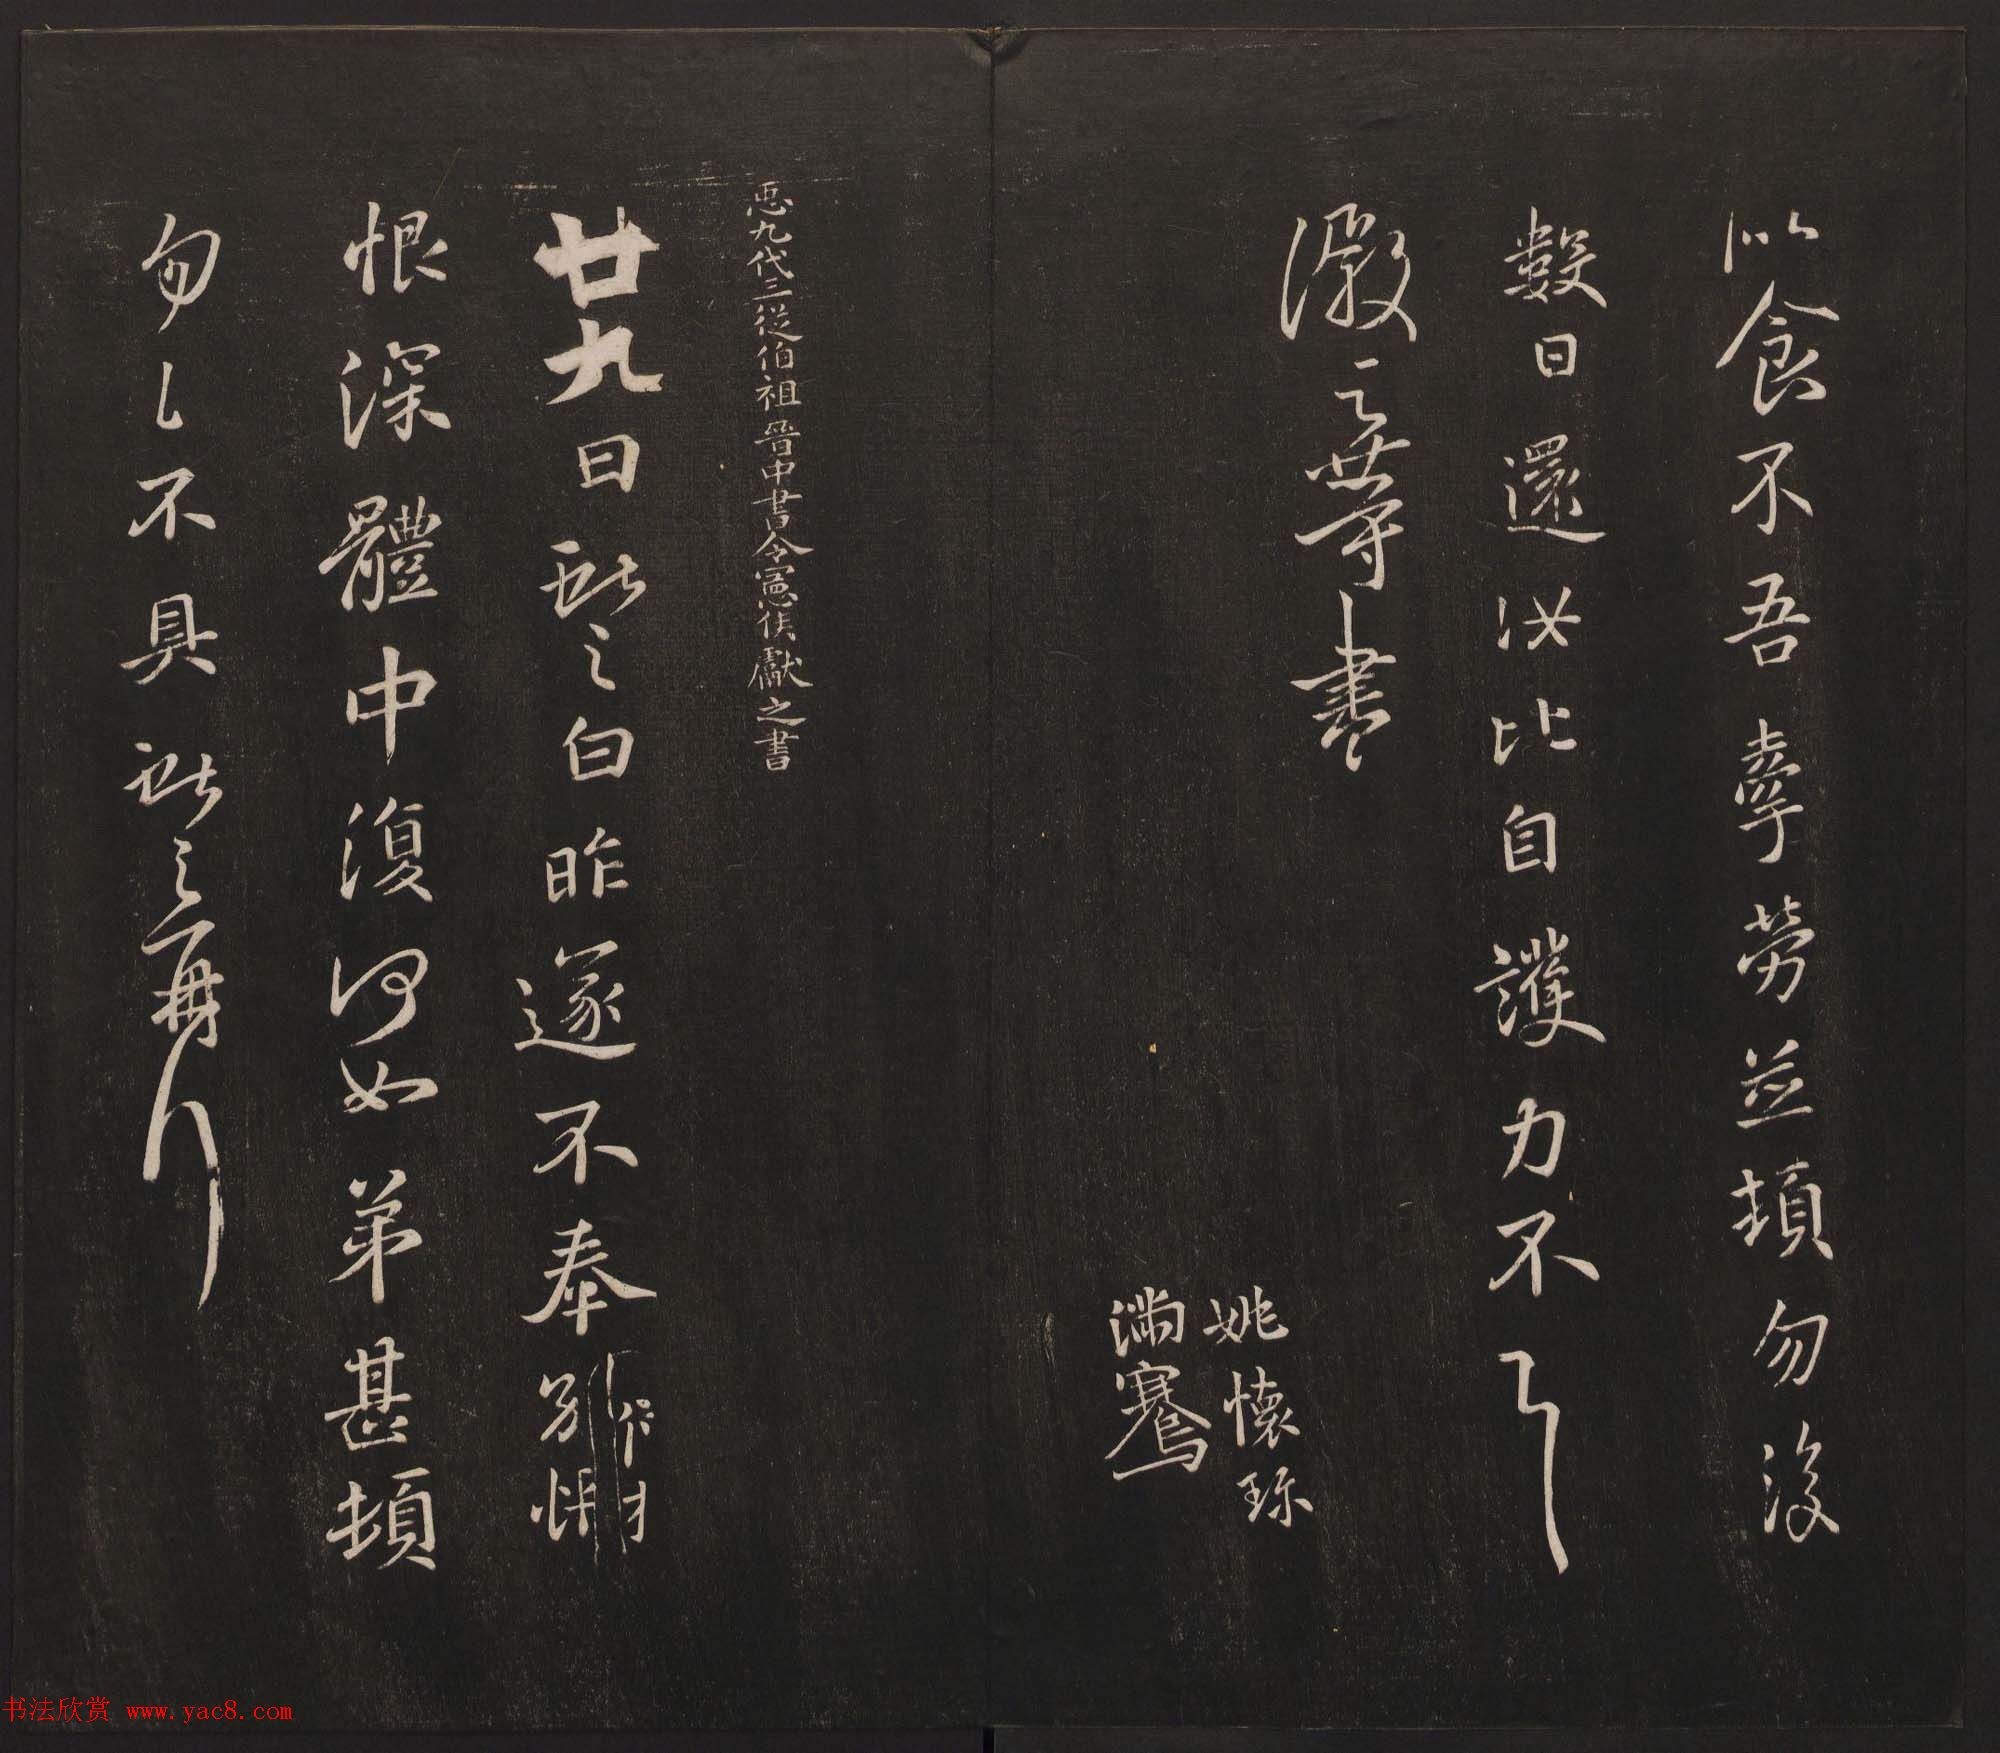 以食不吾牽勞並頓勿復
數日還汝比自護力不一一
澂之等書
姚懷珍
滿騫
臣九代三從伯祖晉中書令憲侯獻之書
廿九日獻之白昨遂不奉別悵
恨深體中復何如弟甚頓
勿勿不具獻之再拜
书法欣赏 www.yac8.com